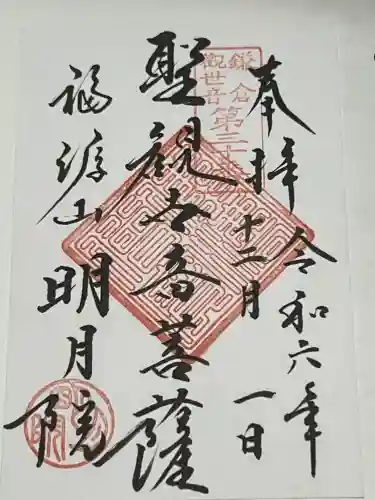 奉拝
令和六年
十二月
一日
鎌倉
観世音
第三十番
聖観世音菩薩
福源山
明月院